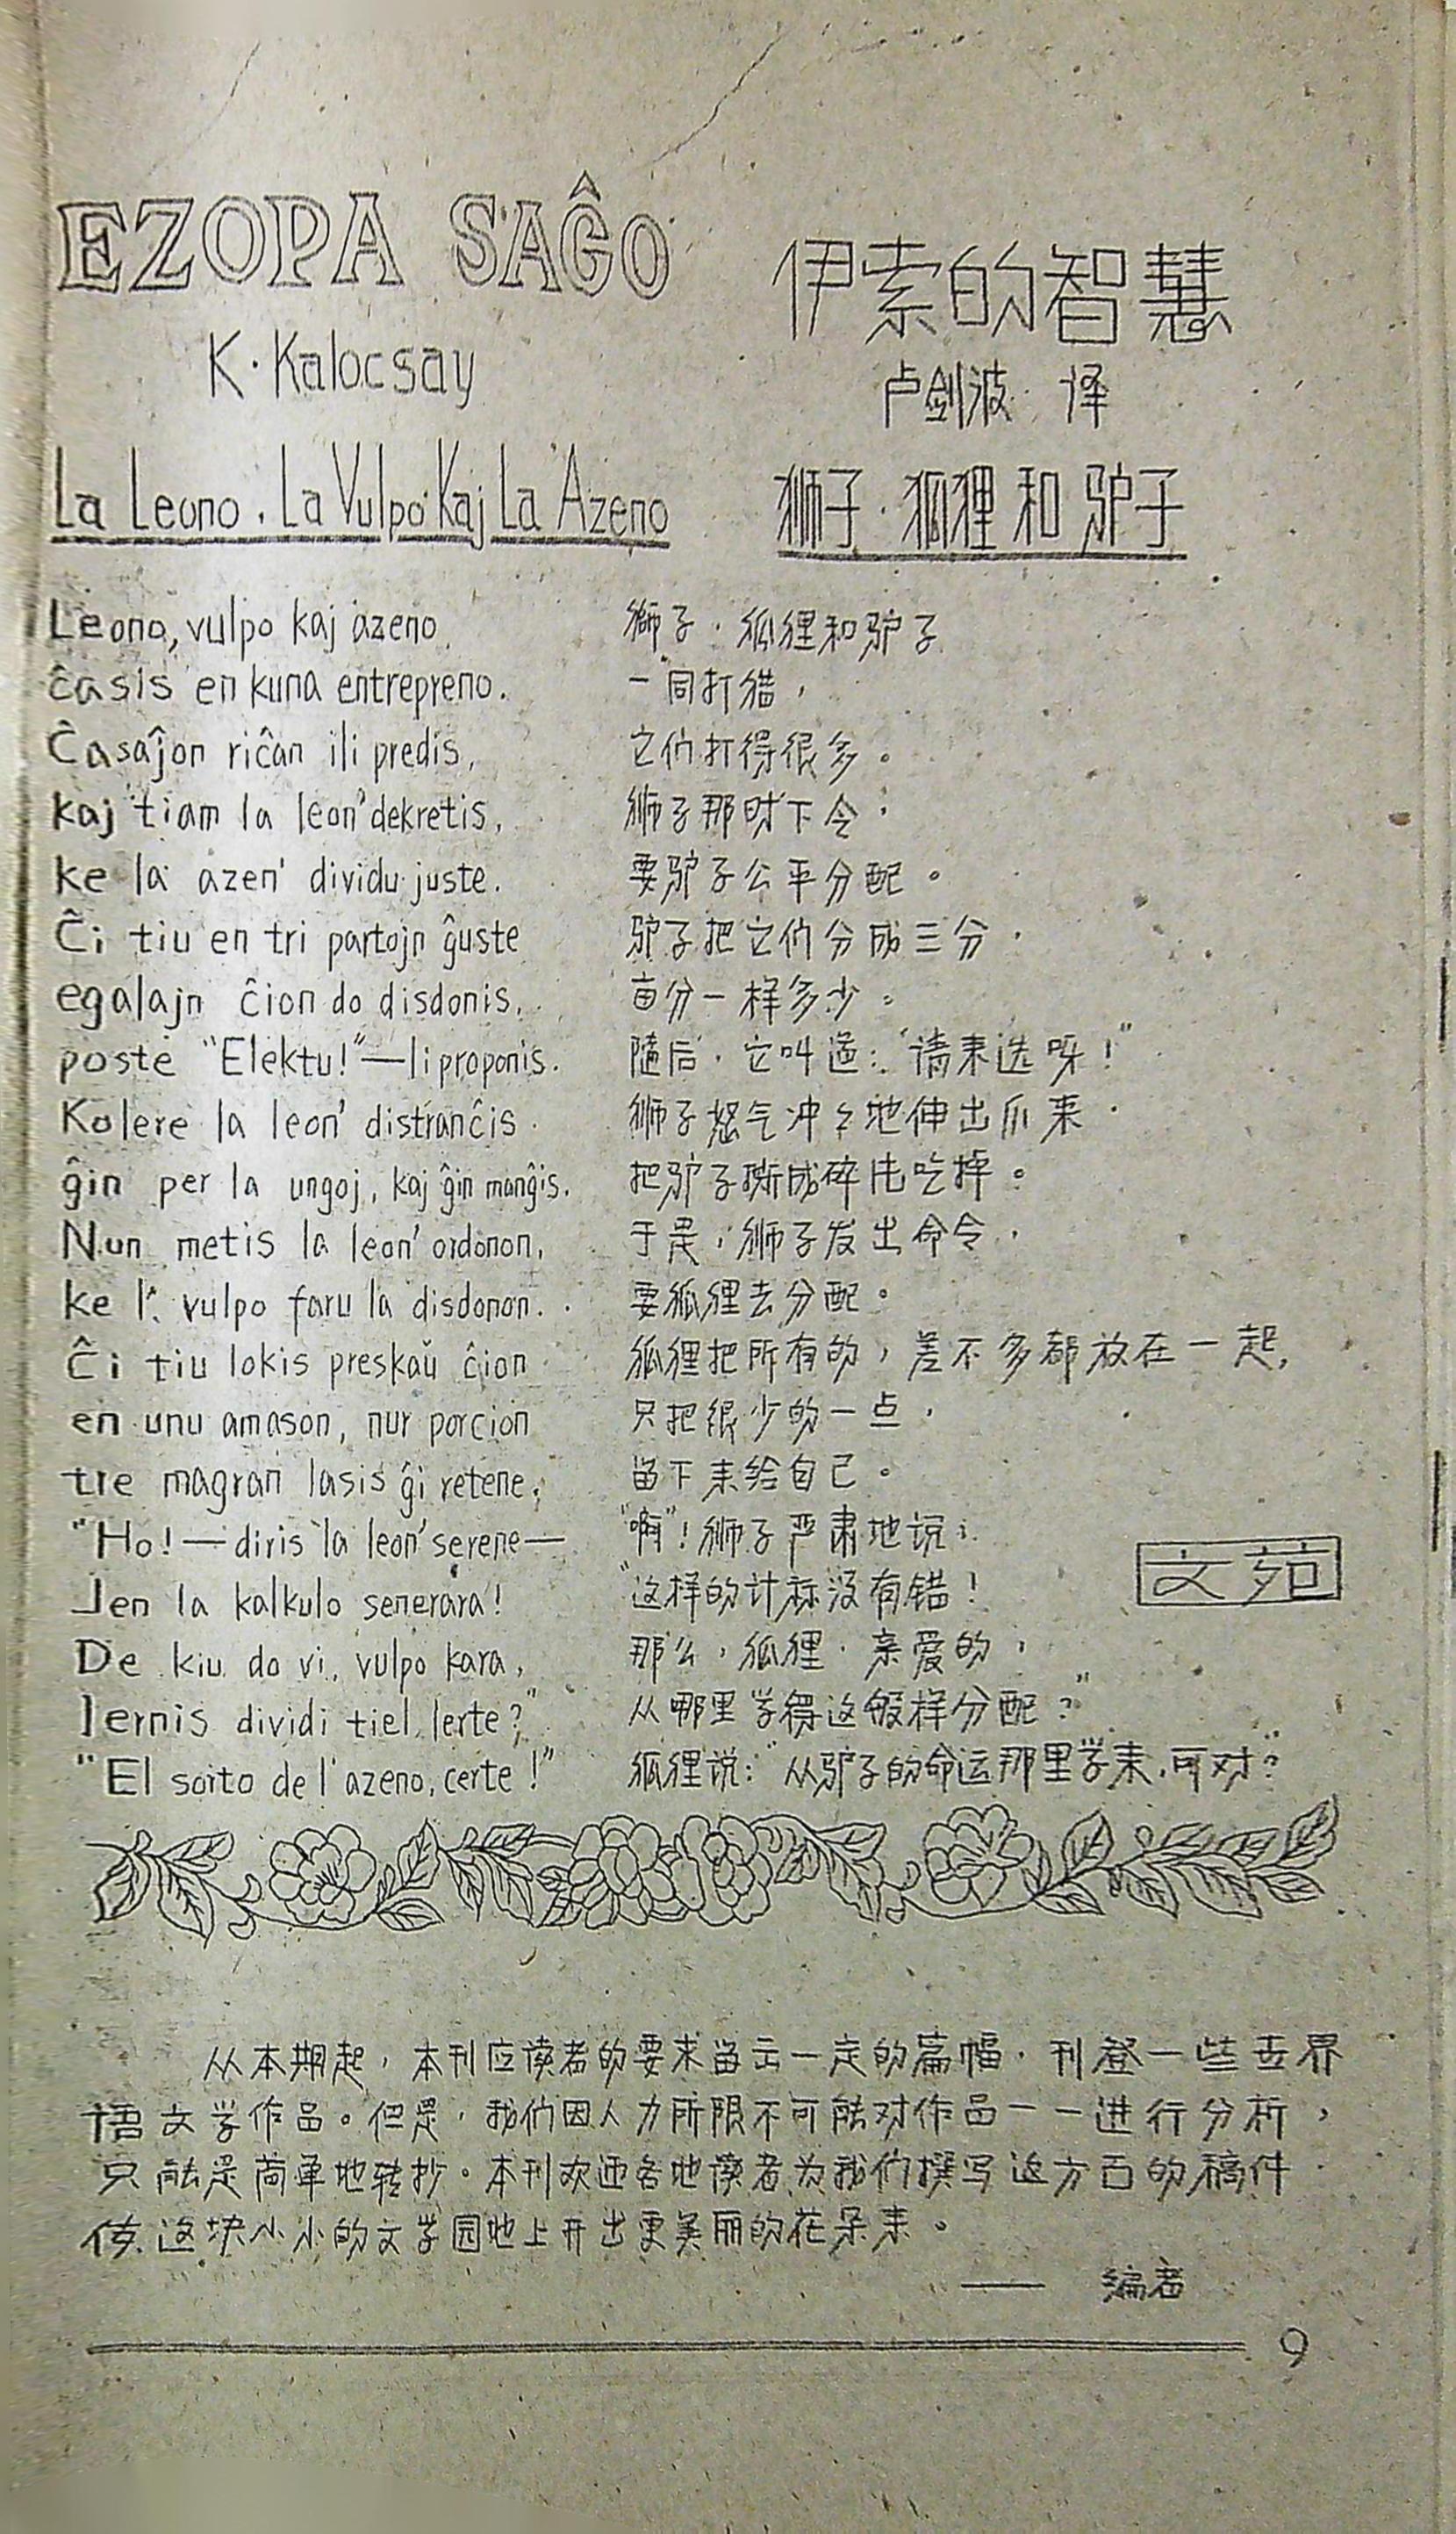 EZOPA SAĜO
K. Kalocsay
La Leono, La Vulpo Kaj La Azeno
Leono, vulpo kaj azeno
ĉasis en kuna entrepreno.
Ĉasaĵon riĉan ili predis,
kaj tiam la leon' dekretis,
ke la azen' dividu juste.
Ĉi tiu en tri partojn ĝuste
egalajn ĉion do disdonis,
poste "Elektu!"—li proponis.
Kolere la leon' distranĉis
ĝin per la ungoj, kaj ĝin manĝis.
Nun metis la leon' ordonon,
ke l' vulpo faru la disdonon.
Ĉi tiu lokis preskaŭ ĉion
en unu amason, nur porcion
tre magran lasis ĝi retene,
"Ho!—diris la leon' serene—
Jen la kalkulo senerara!
De kiu do vi, vulpo kara,
lernis dividi tiel lerte?"
"El sorto de l'azeno, certe!"
伊索的智慧
卢剑波 译
狮子·狐狸和驴子
獅子·狐狸和驴子
一同打猎，
它们打得很多。
狮子那时下令，
要驴子公平分配。
驴子把它们分成三分，
每分一样多少。
随后，它叫道："请来选呀！"
狮子怒气冲々地伸出爪来，
把驴子撕成碎片吃掉。
于是，狮子发出命令，
要狐狸去分配。
狐狸把所有的，差不多都放在一起，
只把很少的一点，
留下来给自己。
"啊"！狮子严肃地说：
"这样的计称没有错！
那么，狐狸，亲爱的，
从哪里学得这般样分配？"
狐狸说："从驴子的命运那里学来，可对？"
文苑
从本期起，本刊应读者的要求留出一定的篇幅，刊登一些世界
语文学作品。但是，我们因人力所限不可能对作品一一进行分析，
只能是简单地转抄。本刊欢迎各地读者为我们撰写这方面的稿件
使这块小小的文学园地上开出更美丽的花朵来。
—— 编者
9